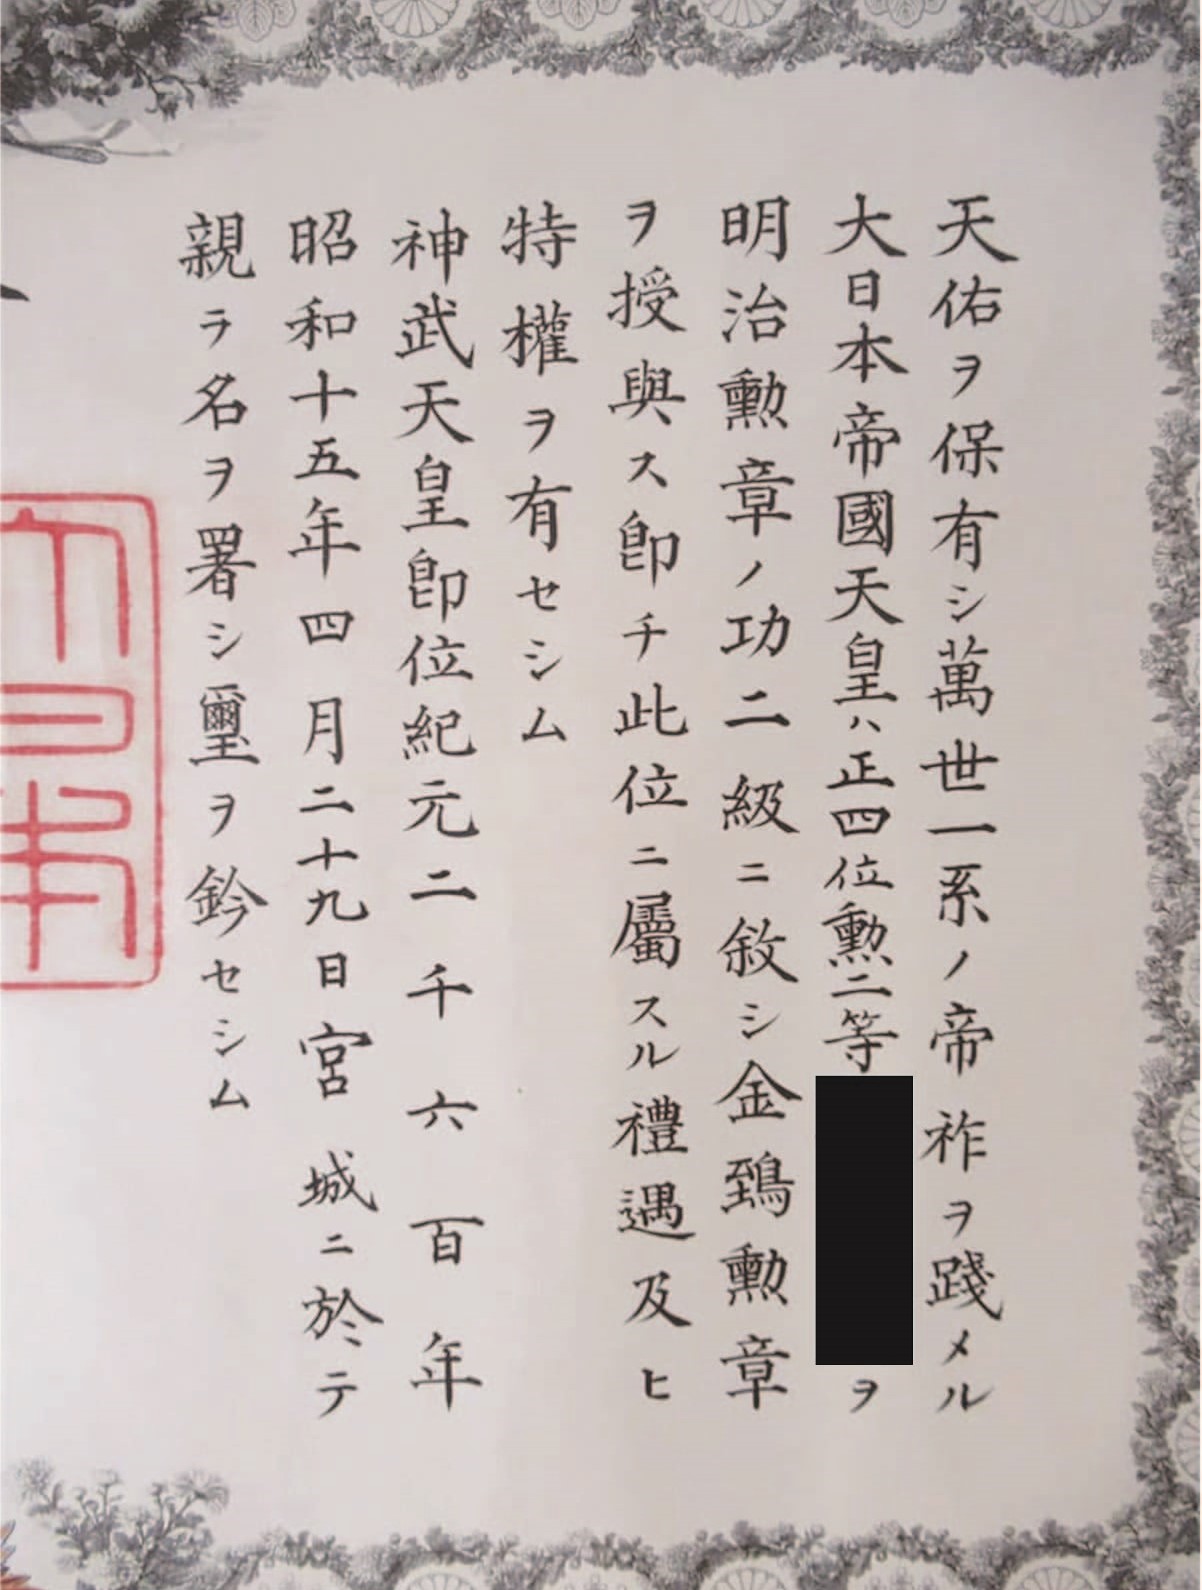 天佑ヲ保有シ萬世一系ノ帝祚ヲ踐メル
大日本帝國天皇ハ正四位勲二等
ヲ
明治勲章ノ功二級ニ敘シ金鵄勲章
ヲ授與ス卽チ此位ニ屬スル禮遇及ヒ
特權ヲ有セシム
神武天皇卽位紀元二千六百年
昭和十五年四月二十九日宮城ニ於テ
親ラ名ヲ署シ璽ヲ鈐セシム